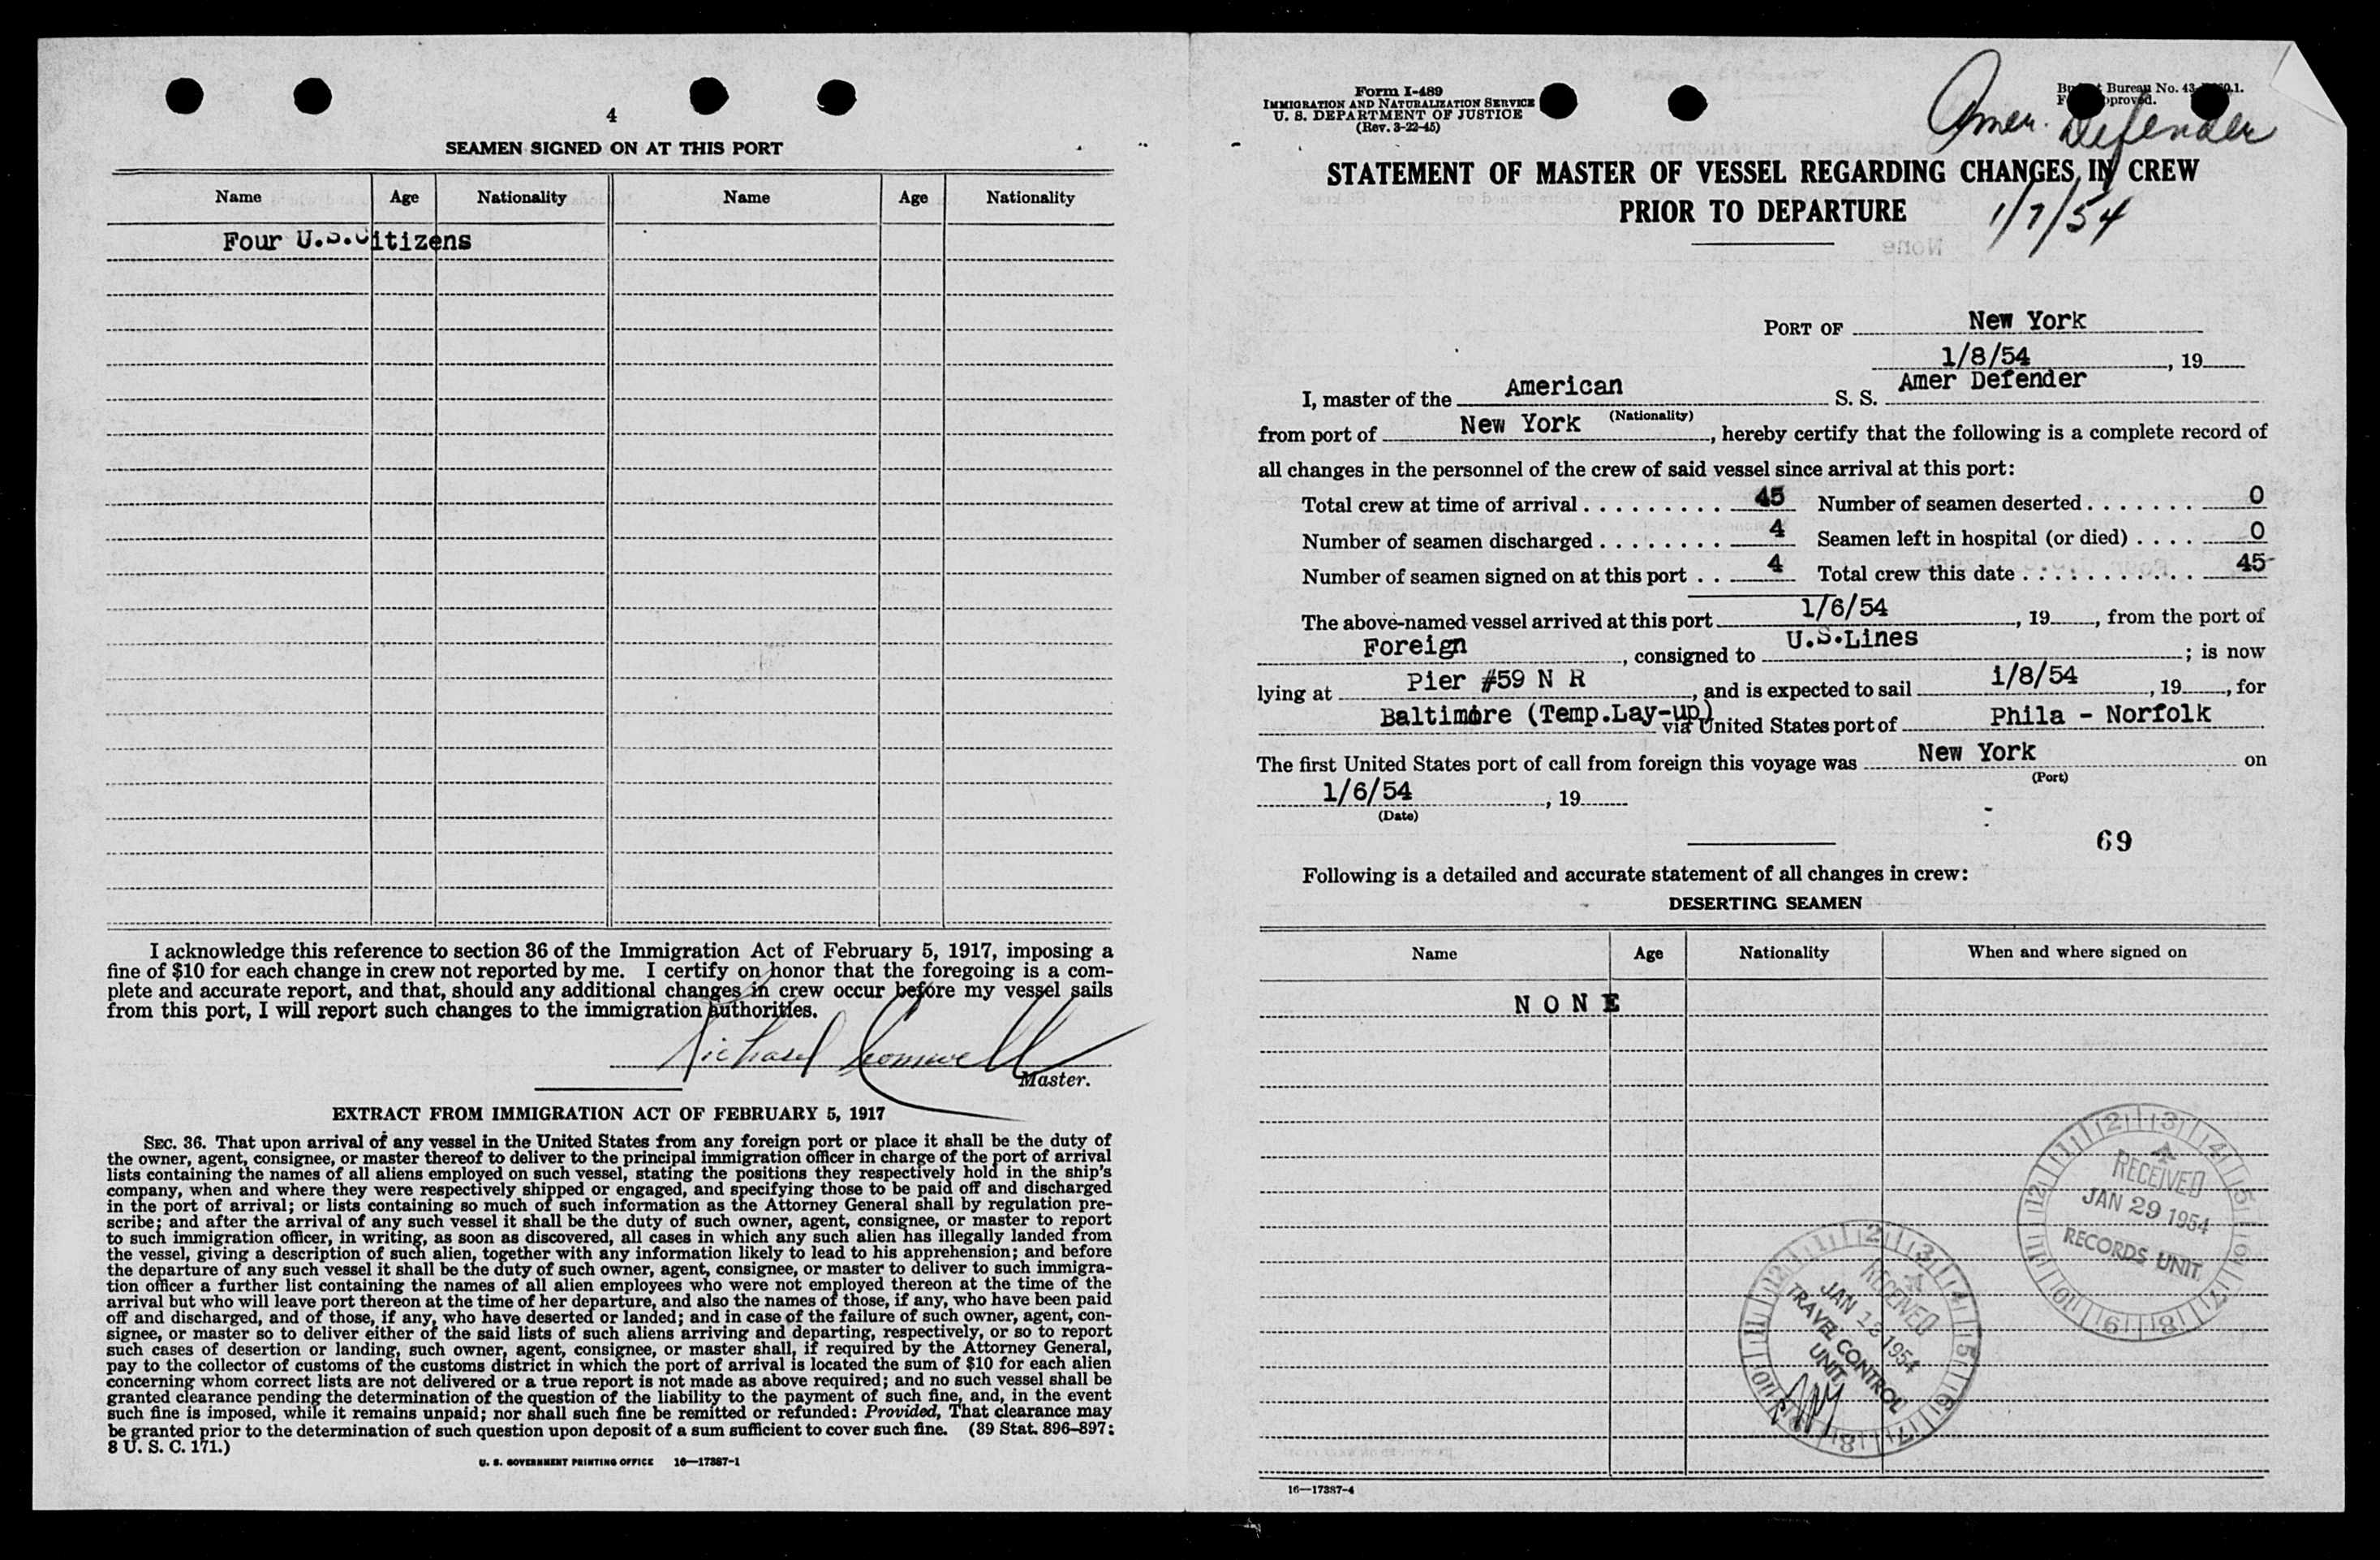 4
SEAMEN SIGNED ON AT THIS PORT
Name Age Nationality Name Age Nationality
Four U.S.Citizens
I acknowledge this reference to section 36 of the Immigration Act of February 5, 1917, imposing a
fine of $10 for each change in crew not reported by me. I certify on honor that the foregoing is a com-
plete and accurate report, and that, should any additional changes in crew occur before my vessel sails
from this port, I will report such changes to the immigration authorities.
Richard Cromwell
Master.
EXTRACT FROM IMMIGRATION ACT OF FEBRUARY 5, 1917
SEC. 36. That upon arrival of any vessel in the United States from any foreign port or place it shall be the duty of
the owner, agent, consignee, or master thereof to deliver to the principal immigration officer in charge of the port of arrival
lists containing the names of all aliens employed on such vessel, stating the positions they respectively hold in the ship's
company, when and where they were respectively shipped or engaged, and specifying those to be paid off and discharged
in the port of arrival; or lists containing so much of such information as the Attorney General shall by regulation pre-
scribe; and after the arrival of any such vessel it shall be the duty of such owner, agent, consignee, or master to report
to such immigration officer, in writing, as soon as discovered, all cases in which any such alien has illegally landed from
the vessel, giving a description of such alien, together with any information likely to lead to his apprehension; and before
the departure of any such vessel it shall be the duty of such owner, agent, consignee, or master to deliver to such immigra-
tion officer a further list containing the names of all alien employees who were not employed thereon at the time of the
arrival but who will leave port thereon at the time of her departure, and also the names of those, if any, who have been paid
off and discharged, and of those, if any, who have deserted or landed; and in case of the failure of such owner, agent, con-
signee, or master so to deliver either of the said lists of such aliens arriving and departing, respectively, or so to report
such cases of desertion or landing, such owner, agent, consignee, or master shall, if required by the Attorney General,
pay to the collector of customs of the customs district in which the port of arrival is located the sum of $10 for each alien
concerning whom correct lists are not delivered or a true report is not made as above required; and no such vessel shall be
granted clearance pending the determination of the question of the liability to the payment of such fine, and, in the event
such fine is imposed, while it remains unpaid; nor shall such fine be remitted or refunded: Provided, That clearance may
be granted prior to the determination of such question upon deposit of a sum sufficient to cover such fine. (39 Stat. 896-897;
8 U. S. C. 171.)
U. S. GOVERNMENT PRINTING OFFICE 16—17387-1
Form I-489
IMMIGRATION AND NATURALIZATION SERVICE
U. S. DEPARTMENT OF JUSTICE
(Rev. 3-22-45)
Bureau No. 43
Amer. Defender
STATEMENT OF MASTER OF VESSEL REGARDING CHANGES IN CREW
PRIOR TO DEPARTURE
1/7/54
PORT OF New York
1/8/54, 19
I, master of the American S. S. Amer Defender
(Nationality)
from port of New York, hereby certify that the following is a complete record of
all changes in the personnel of the crew of said vessel since arrival at this port:
Total crew at time of arrival 45 Number of seamen deserted 0
Number of seamen discharged 4 Seamen left in hospital (or died) 0
Number of seamen signed on at this port 4 Total crew this date 45
The above-named vessel arrived at this port 1/6/54, 19, from the port of
Foreign, consigned to U.S.Lines; is now
lying at Pier #59 N R, and is expected to sail 1/8/54, 19, for
Baltimore (Temp.Lay-up) via United States port of Phila - Norfolk
The first United States port of call from foreign this voyage was New York on
(Port)
1/6/54, 19
(Date)
69
Following is a detailed and accurate statement of all changes in crew:
DESERTING SEAMEN
Name Age Nationality When and where signed on
NONE
RECEIVED
JAN 29 1954
RECORDS UNIT
RECEIVED
JAN 13 1954
TRAVEL CONTROL
UNIT
16—17387-4